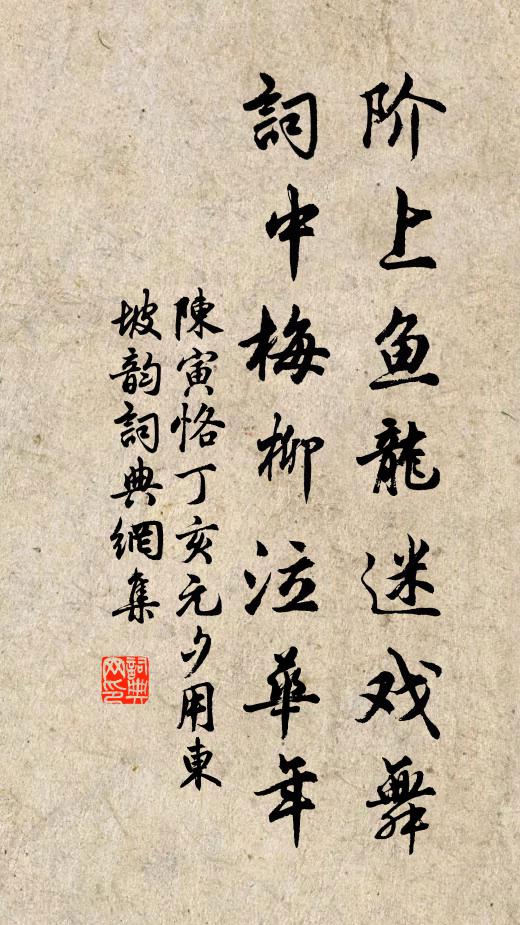 阶上鱼龍迷戏舞
詞中梅柳泣華年
陳寅恪丁亥元夕用東
坡韵詞典網集
詞典
网印